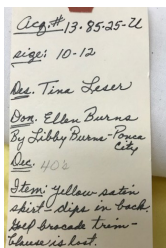 Acq.# 13-85-25-U
size: 10-12
Des. Tina Leser
Don. Ellen Burns
By Libby Burns-Ponca
City
Dec. 40's
Item: yellow satin
skirt-dips in back.
Gold brocade trim-
blouse is lost.